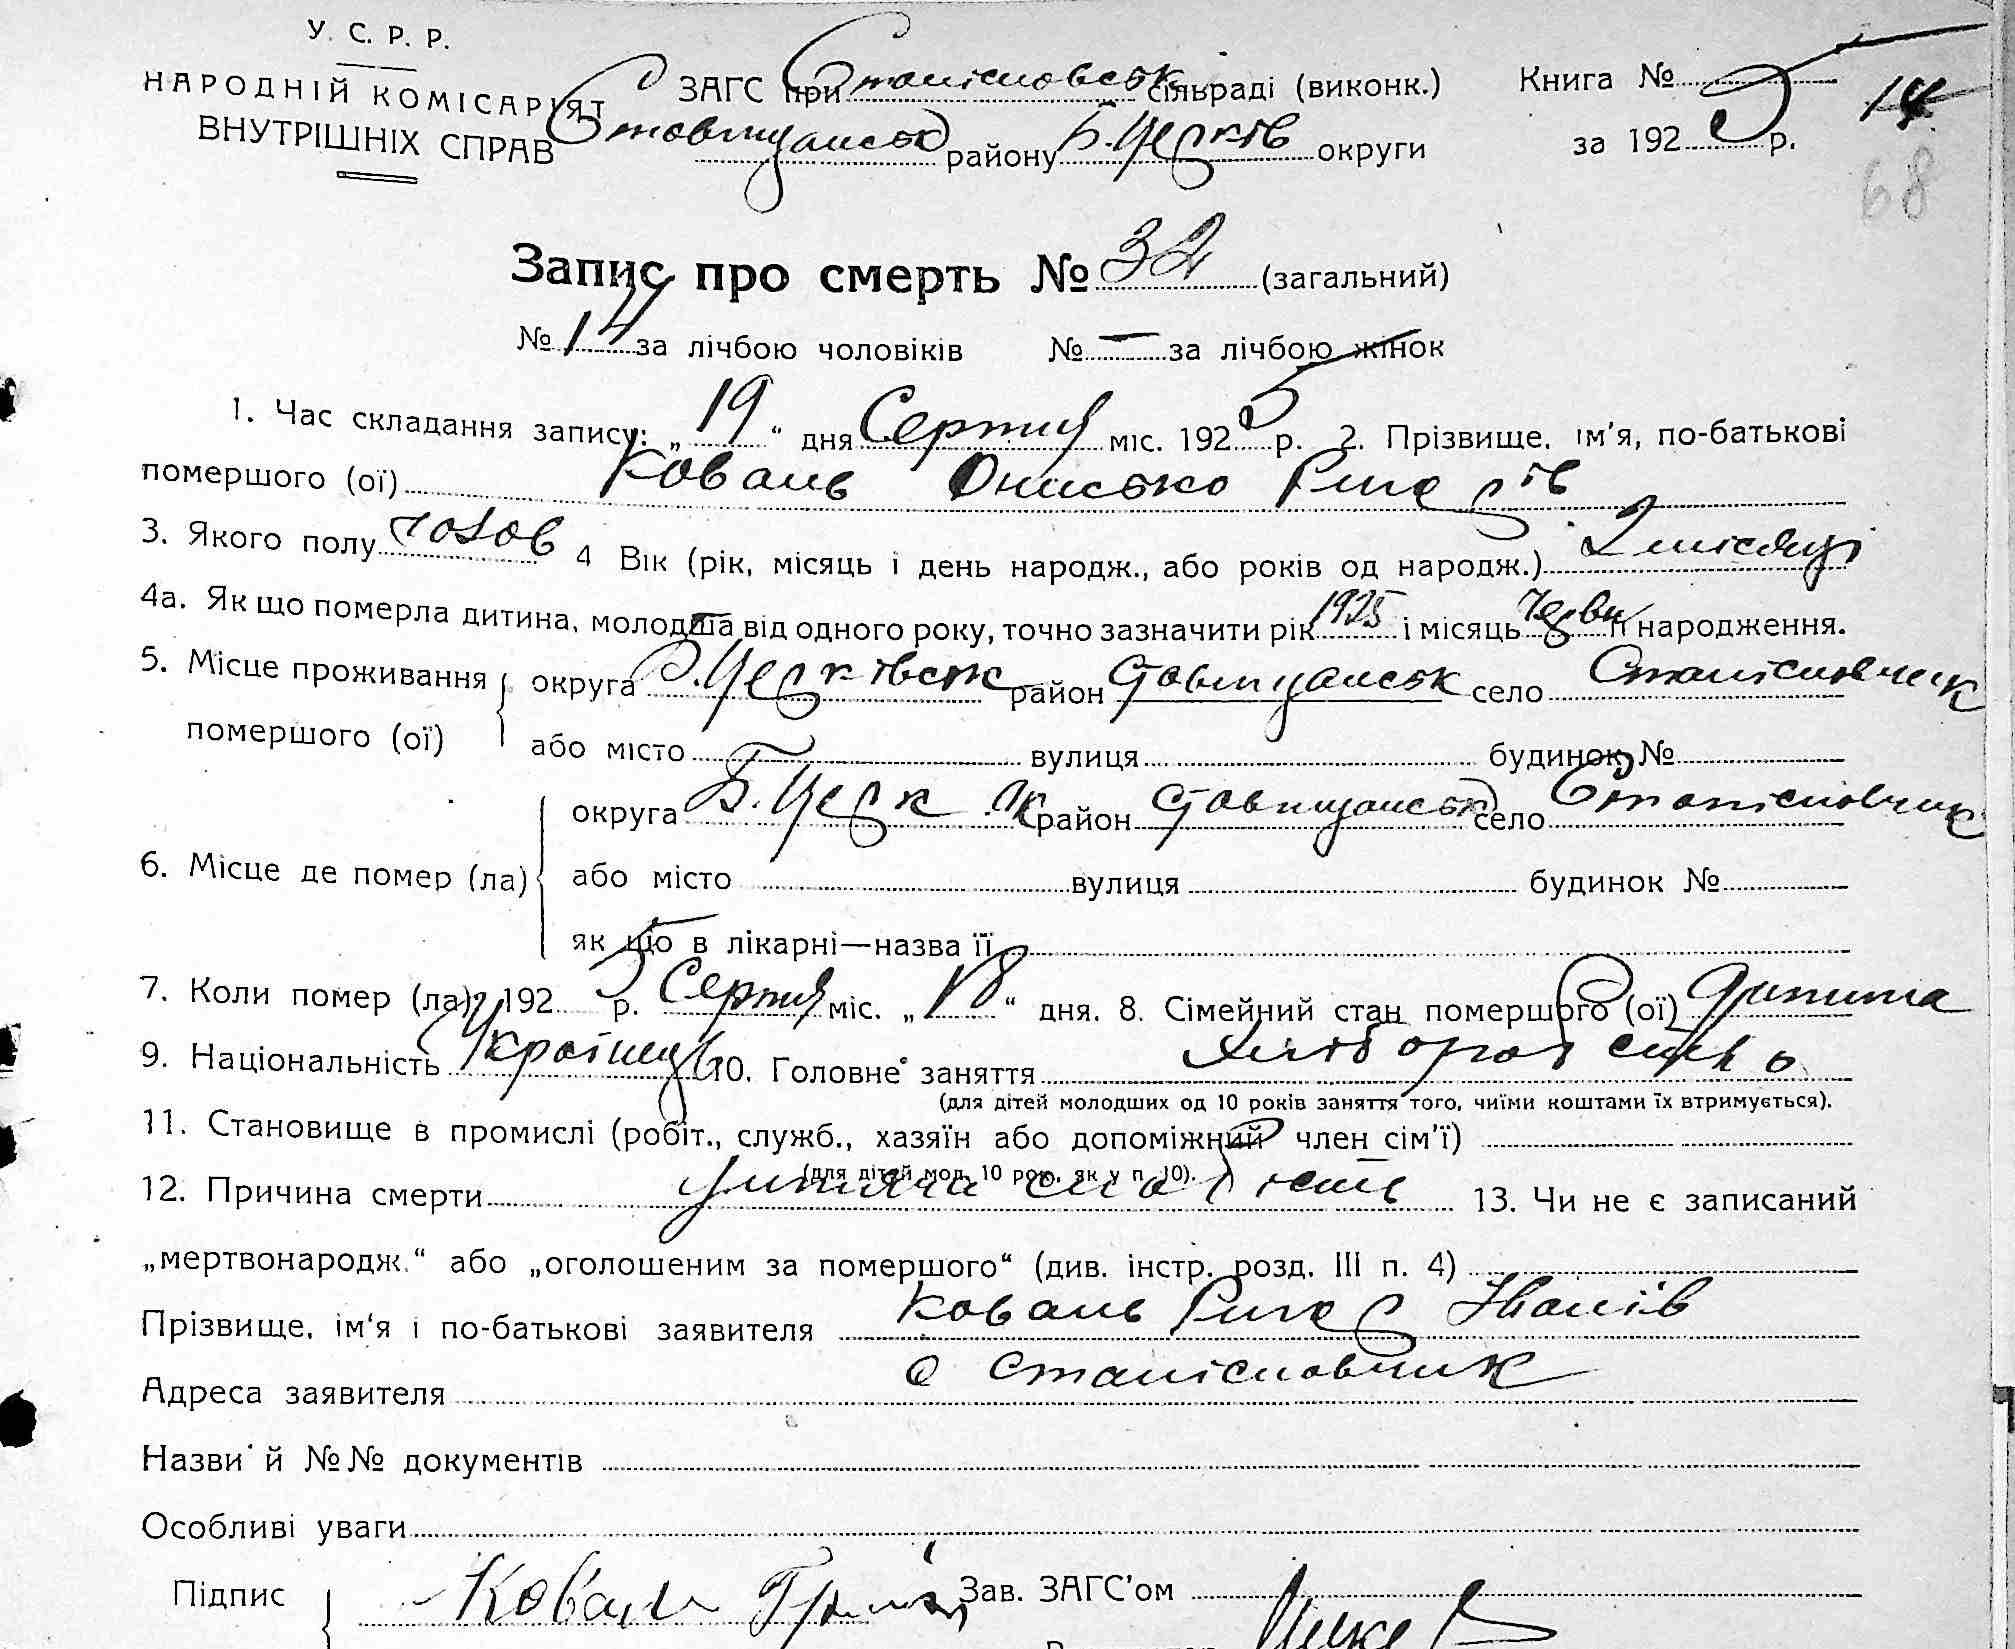 У. С. Р. Р.
НАРОДНІЙ КОМІСАРІЯТ
ВНУТРІШНІХ СПРАВ
ЗАГС при Станіславськ сільраді (виконк.)
Ставищанськ району Б.Церків округи
Книга №
за 1925 р.
14
68
Запис про смерть № 32 (загальний)
№ 14 за лічбою чоловіків № — за лічбою жінок
1. Час складання запису: „19“ дня Серпня міс. 1925 р. 2. Прізвище, ім'я, по-батькові
помершого (ої) Коваль Онисько
3. Якого полу чолов 4 Вік (рік, місяць і день народж., або років од народж.) 2 місяці
4а. Як що померла дитина, молодша від одного року, точно зазначити рік 1925 і місяць Черви народження.
5. Місце проживання помершого (ої) округа Б.Церківськ район Ставищанськ село Станіславчик
або місто вулиця будинок №
6. Місце де помер (ла) округа Б.Церк район Ставищанськ село Станіславчик
або місто вулиця будинок №
як що в лікарні—назва її
7. Коли помер (ла) 1925 р. Серпня міс. „18“ дня. 8. Сімейний стан помершого (ої) дитина
9. Національність Українец 10. Головне заняття Хліборобство
(для дітей молодших од 10 років заняття того, чиїми коштами їх втримується).
11. Становище в промислі (робіт., служб., хазяїн або допоміжний член сім'ї)
(для дітей мол. 10 рок. як у п. 10).
12. Причина смерти дитяча слабість 13. Чи не є записаний
„мертвонародж.“ або „оголошеним за помершого“ (див. інстр. розд. III п. 4)
Прізвище, ім'я і по-батькові заявителя Коваль Іванів
Адреса заявителя с Станіславчик
Назви й №№ документів
Особливі уваги
Підпис Коваль Зав. ЗАГС'ом